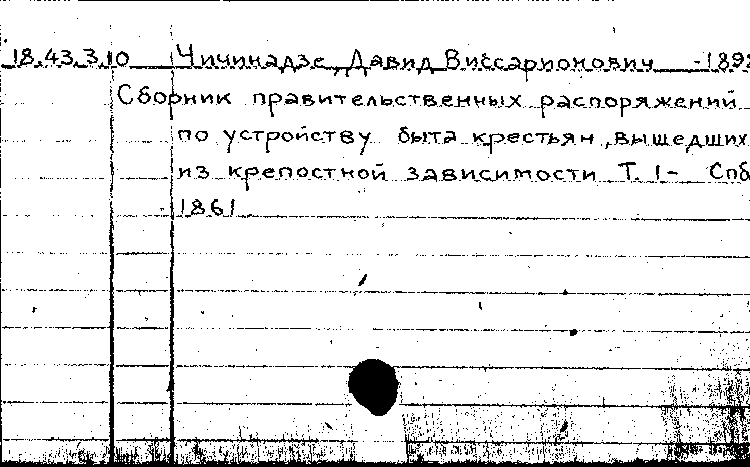 18.43.3.10 Чичинадзе, Давид Виссарионович -1892
Сборник правительственных распоряжений
по устройству быта крестьян, вышедших
из крепостной зависимости Т. 1- Спб
1861